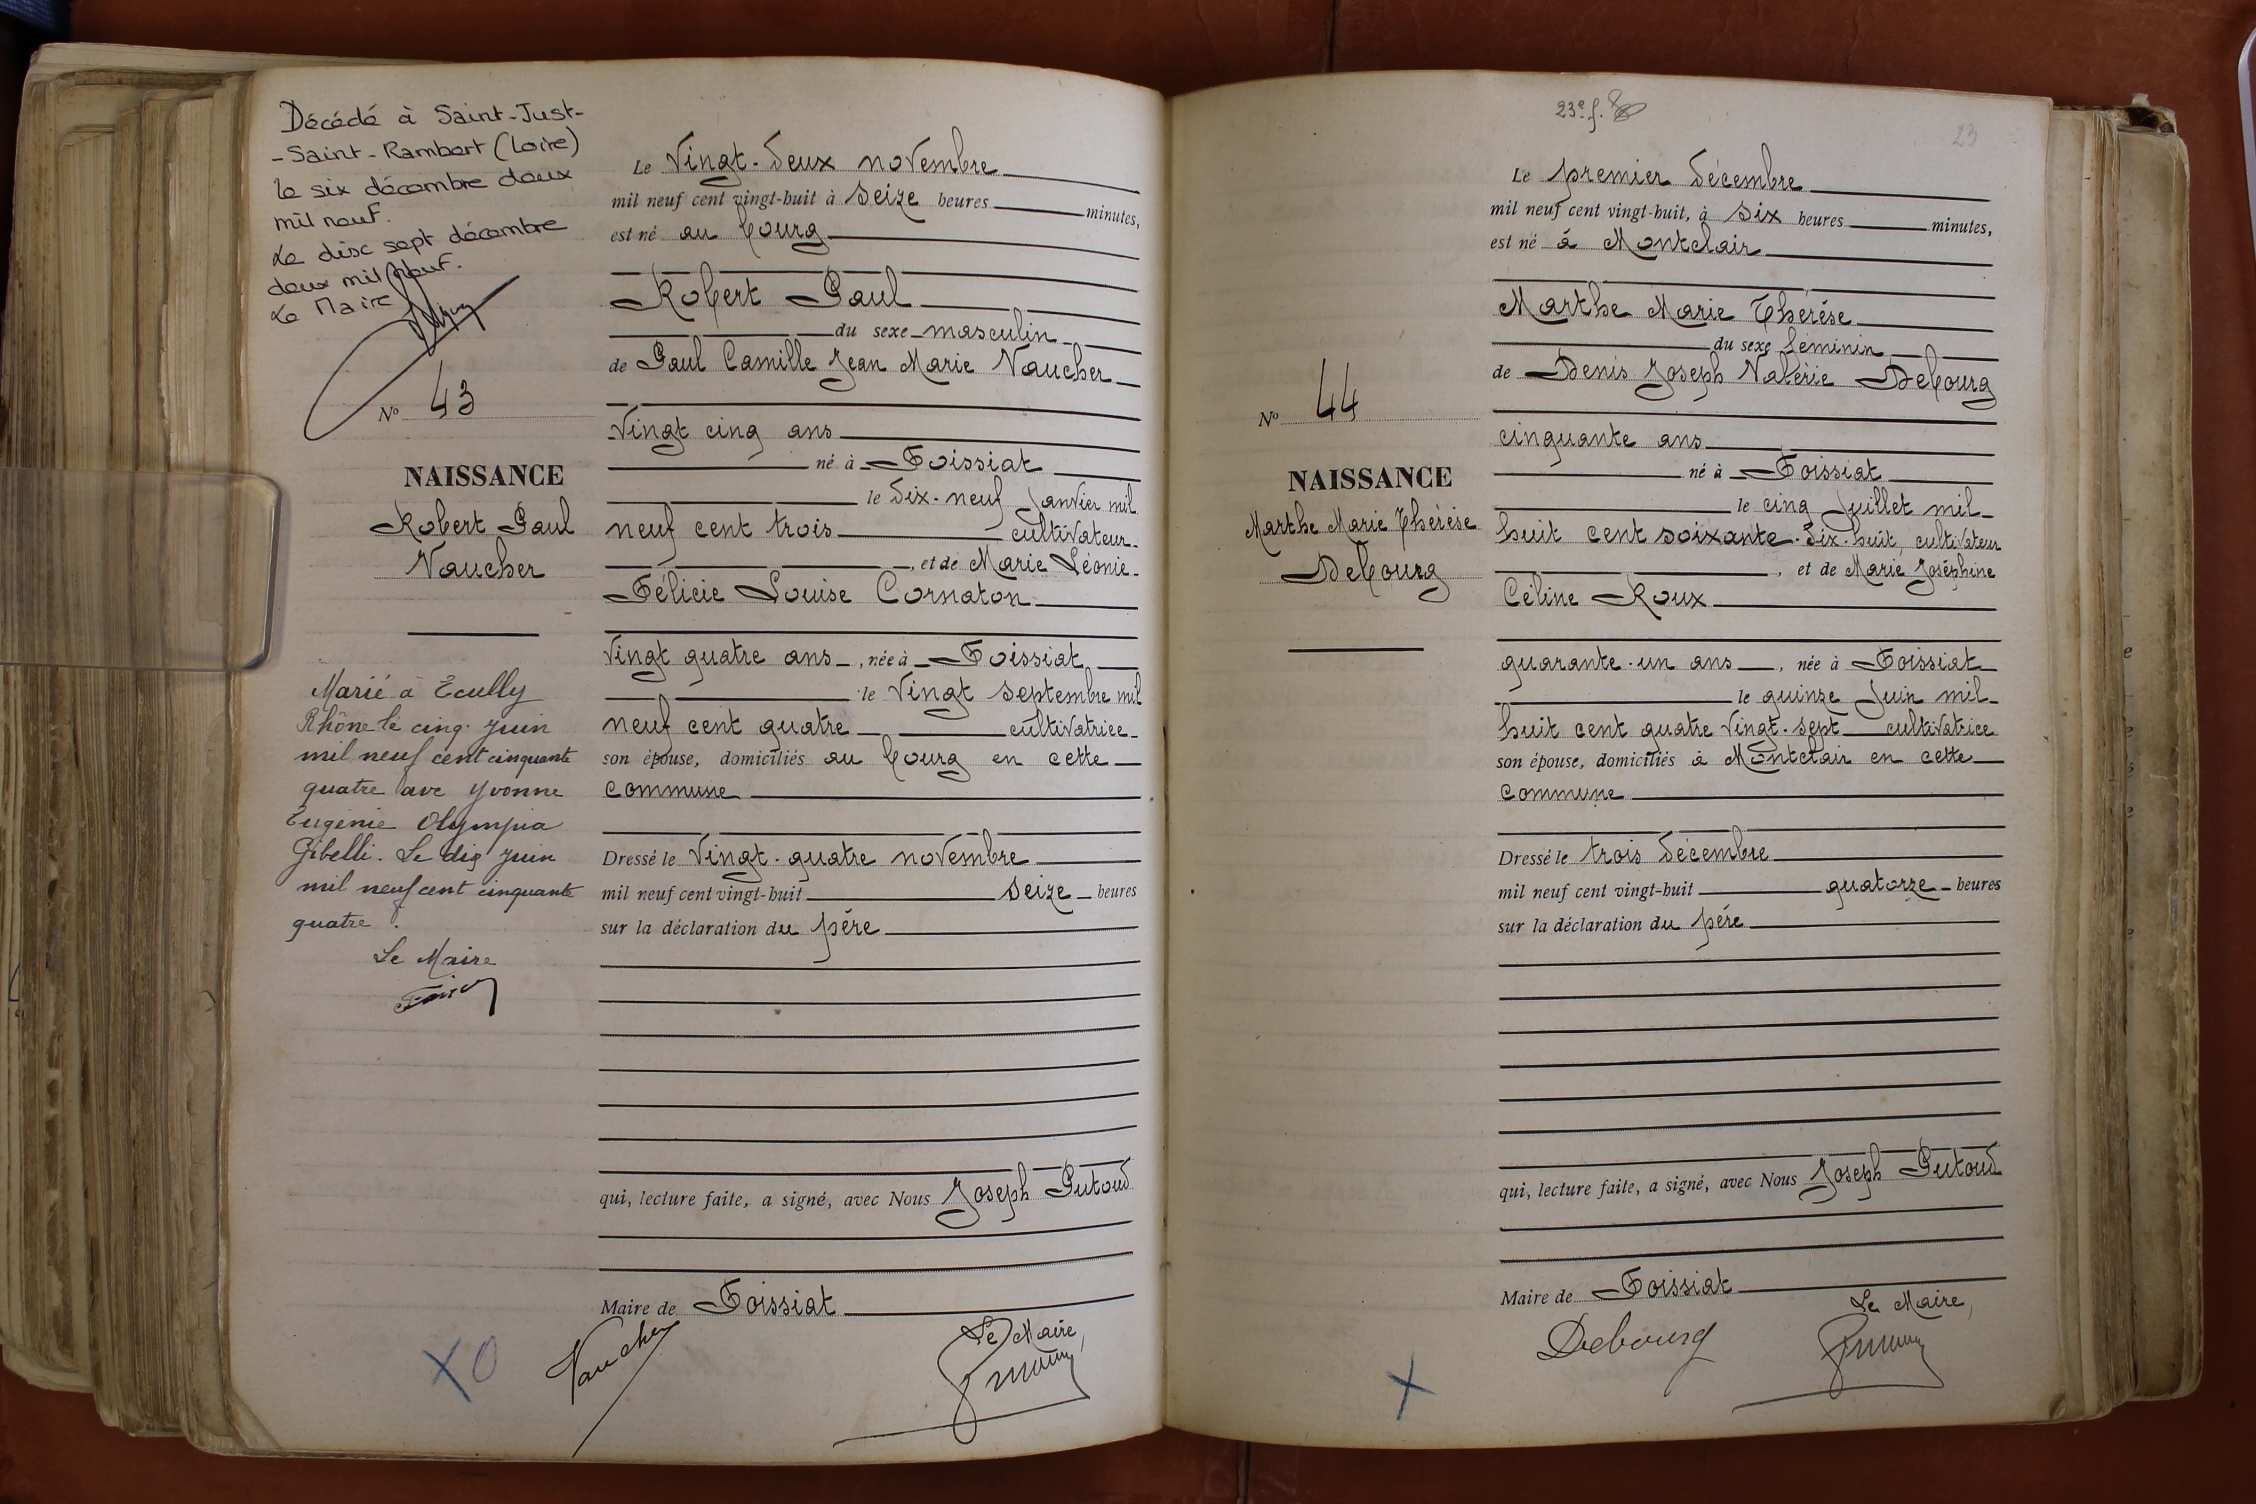 Décédé à Saint-Just-
-Saint-Rambert (Loire)
le six décembre deux
mil neuf.
Le disc sept décembre
deux mil neuf.
Le Maire
No 43
NAISSANCE
Robert Paul
Vaucher
Marié à Ecully
Rhône le cinq juin
mil neuf cent cinquante
quatre avc Yvonne
Eugénie Olympia
Gibelli. Le dix juin
mil neuf cent cinquante
quatre.
Le Maire
Le vingt-deux novembre
mil neuf cent vingt-huit à seize heures minutes,
est né au bourg
Robert Paul
du sexe masculin
de Paul Camille Jean Marie Vaucher
vingt cinq ans
né à Foissiat
le dix-neuf janvier mil
neuf cent trois cultivateur
, et de Marie Léonie
Félicie Louise Cornaton
vingt quatre ans , née à Foissiat
le vingt septembre mil
neuf cent quatre cultivatrice
son épouse, domiciliés au bourg en cette
commune
Dressé le vingt-quatre novembre
mil neuf cent vingt-huit seize heures
sur la déclaration du père
qui, lecture faite, a signé, avec Nous Joseph Putoud
Maire de Foissiat
Vaucher
Le Maire,
XO
23e f.
23
No 44
NAISSANCE
Marthe Marie Thérèse
Debourg
Le premier décembre
mil neuf cent vingt-huit, à six heures minutes,
est né à Montclair
Marthe Marie Thérèse
du sexe féminin
de Denis Joseph Valérie Debourg
cinquante ans
né à Foissiat
le cinq juillet mil
huit cent soixante-dix-huit, cultivateur
, et de Marie Joséphine
Céline Roux
quarante-un ans , née à Foissiat
le quinze juin mil
huit cent quatre vingt-sept cultivatrice
son épouse, domiciliés à Montclair en cette
commune
Dressé le trois décembre
mil neuf cent vingt-huit quatorze heures
sur la déclaration du père
qui, lecture faite, a signé, avec Nous Joseph Putoud
Maire de Foissiat
Debourg
Le Maire,
X